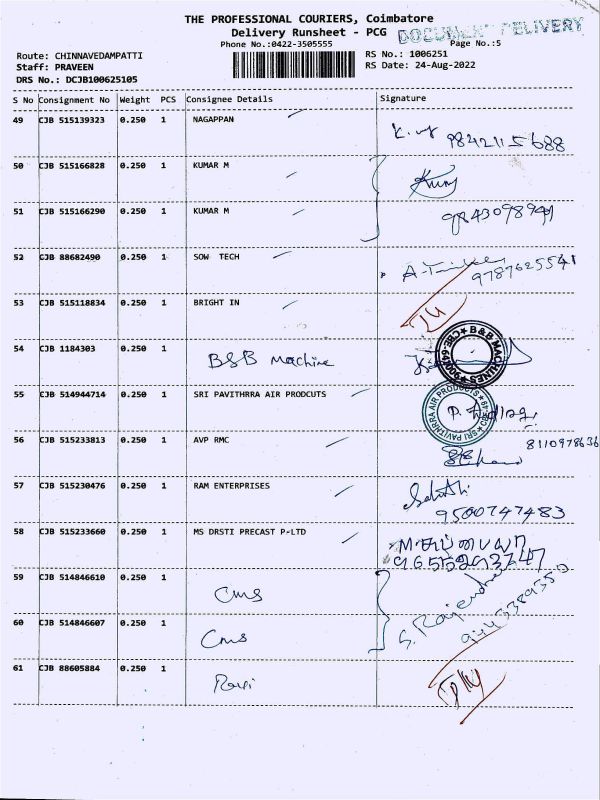 THE PROFESSIONAL COURIERS, Coimbatore
Delivery Runsheet - PCG
DOCUMENT DELIVERY
Phone No.:0422-3505555
Page No.:5
Route: CHINNAVEDAMPATTI
RS No.: 1006251
Staff: PRAVEEN
RS Date: 24-Aug-2022
DRS No.: DCJB100625105
S No Consignment No Weight PCS Consignee Details Signature
49 CJB 515139323 0.250 1 NAGAPPAN
9842115688
50 CJB 515166828 0.250 1 KUMAR M
51 CJB 515166290 0.250 1 KUMAR M
52 CJB 88682490 0.250 1 SOW TECH
9787625541
53 CJB 515118834 0.250 1 BRIGHT IN
54 CJB 1184303 0.250 1 B&B Machine
B&B MACHINES
55 CJB 514944714 0.250 1 SRI PAVITHRRA AIR PRODCUTS
SRI PAVITHRRA AIR PRODUCTS
56 CJB 515233813 0.250 1 AVP RMC
8110978636
57 CJB 515230476 0.250 1 RAM ENTERPRISES
9500747483
58 CJB 515233660 0.250 1 MS DRSTI PRECAST P-LTD
59 CJB 514846610 0.250 1 Cms
60 CJB 514846607 0.250 1 Cms
S. Rajendra
61 CJB 88605884 0.250 1 Ravi